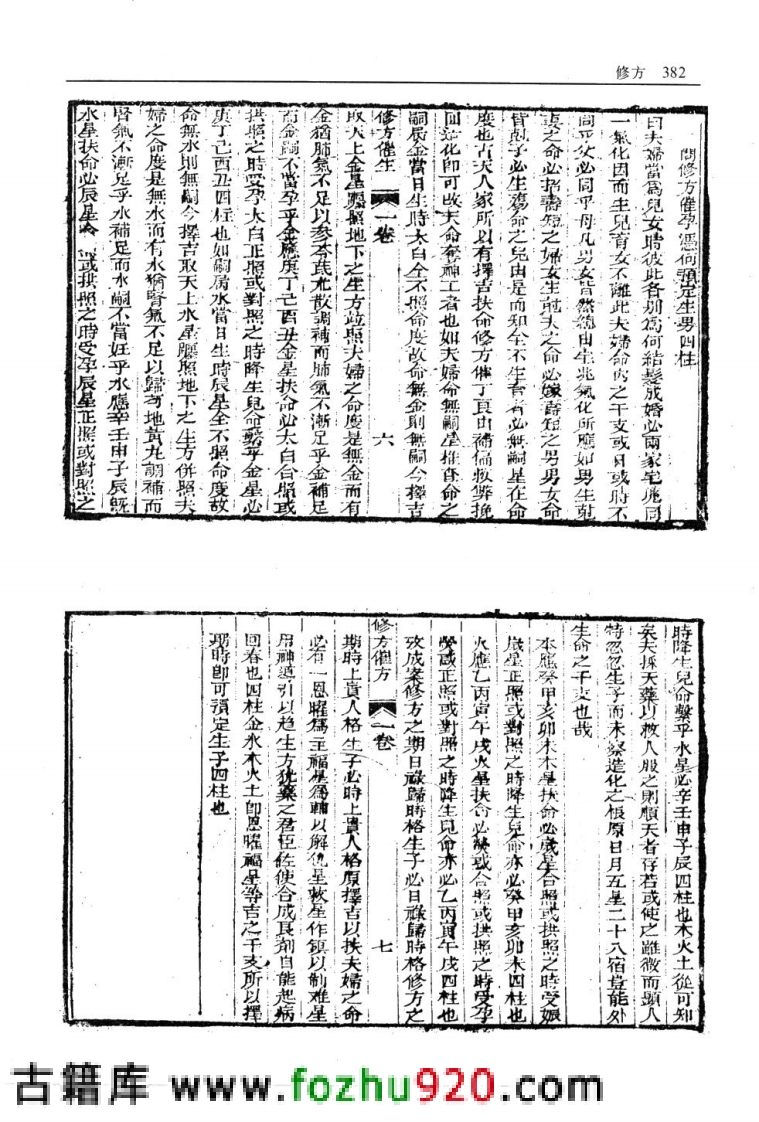 修方 382
問修方催孕憑何預定生男四柱
曰夫婦當爲兒女時彼此各別爲何結髮成婚必兩家宅兆同
一氣化因而生兒育女不離此夫婦命內之干支或日或時不
同乎父必同乎母凡男女皆然總由生兆氣化所應如男生剋
妻之命必招壽短之婦女生剋夫之命必嫁壽短之男男女命
皆剋子必生殤命之兒由是而知全不生育者必無嗣星在命
度也古天人家所以有擇吉扶命修方催丁頁由補偏救弊挽
回造化即可改天命奪神工者也如夫婦命無嗣星推查命之
嗣辰金當日生時太白全不照命度故命無金則無嗣今擇吉
修方催生 一卷 六
取天上金星臨照地下之生方竝照夫婦之命度是無金而有
金猶肺氣不足以參苓芪朮散調補而肺氣不漸足乎金補足
而金嗣不當孕乎金應庚丁己酉丑金星扶命必太白合照或
拱照之時受孕太白正照或對照之時降生兒命繫乎金星必
庚丁己酉丑四柱也如嗣屬水當日生時辰星全不照命度故
命無水則無嗣今擇吉取天上水星臨照地下之生方併照夫
婦之命度是無水而有水猶腎氣不足以歸芍地黃丸調補而
腎氣不漸足乎水補足而水嗣不當妊乎水應辛壬申子辰旣
水星扶命必辰星 或拱照之時受孕辰星正照或對照之
時降生兒命繫乎水星必辛壬申子辰四柱也木火土從可知
矣夫採天藥以救人服之則順天者存若或使之雖微而顯人
特忽忽生子而未察造化之根原日月五星二十八宿豈能外
生命之干支也哉
木應癸甲亥卯未木星扶命必歲星合照或拱照之時受娠
歲星正照或對照之時降生兒命亦必癸甲亥卯未四柱也
火應乙丙寅午戌火星扶命必熒或合照或拱照之時受孕
熒或正照或對照之時降生兒命亦必乙丙寅午戌四柱也
致成案修方之期日祿歸時格生子必日祿歸時格修方之
修方催方 一卷 七
期時上貴人格生子必時上貴人格原擇吉以扶夫婦之命
必有一恩曜爲主福星爲輔以解仇星救星作鎮以制難星
用神導引以趋生方犹藥之君臣佐使合成良劑自能起病
回春也四柱金水木火土即恩曜福星等吉之干支所以擇
現時即可預定生子四柱也
古籍库 www.fozhu920.com